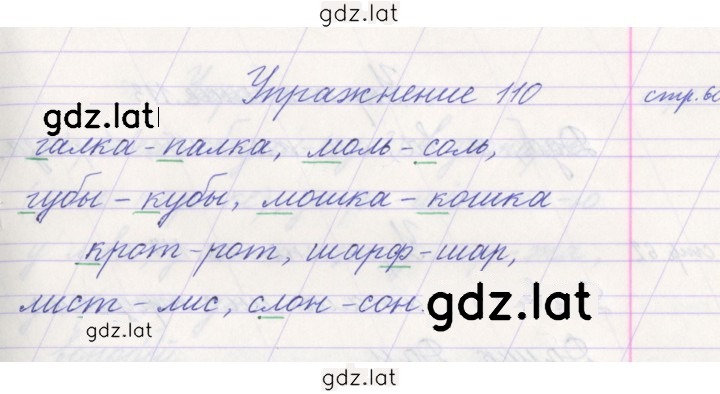 gdz.lat
Упражнение 110 стр. 60
gdz.lat
галка - палка, моль - соль,
губы - кубы, мошка - кошка
крот - рот, шарф - шар,
лист - лис, слон - сон.
gdz.lat
gdz.lat
gdz.lat